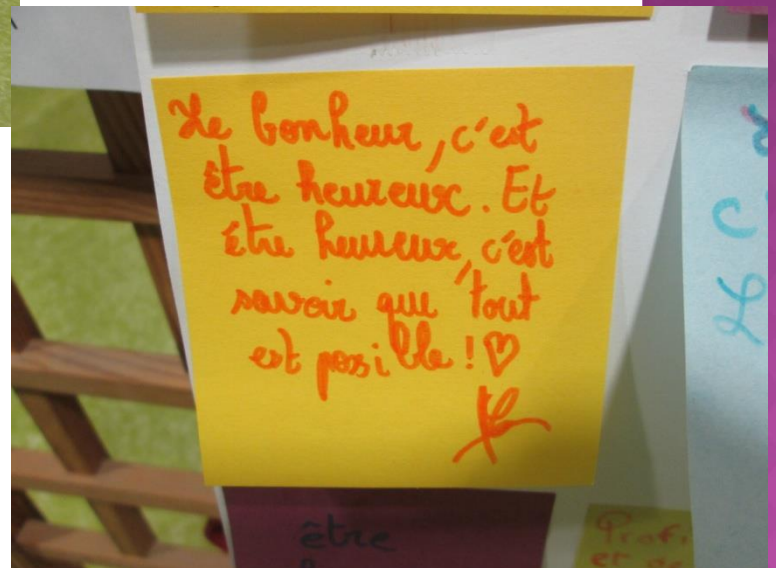 Le bonheur, c'est
être heureux. Et
être heureux, c'est
savoir que tout
est possible ! ♡
être
Profi
et de